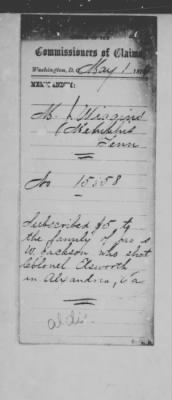 Commissioners of Claims
Washington, D.C. May 1 187
M. Wiggins
Memphis
Tenn
No 15558
Subscribed $5 to
the family of Jas
W. Jackson who shot
Colonel Elsworth
in Alexandria, Va